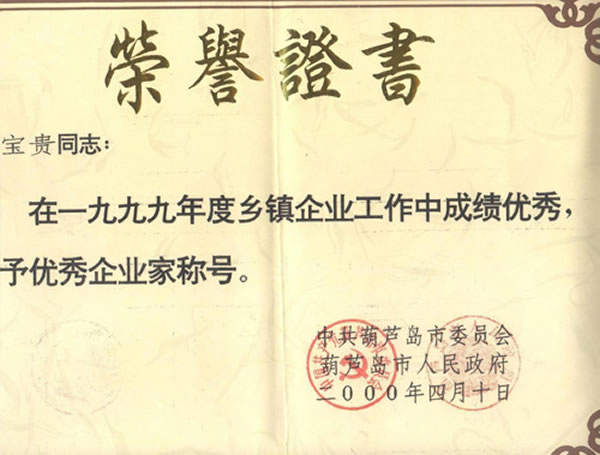 榮譽證書
宝贵同志：
在一九九九年度乡镇企业工作中成绩优秀，
予优秀企业家称号。
中共葫芦岛市委员会
葫芦岛市人民政府
二000年四月十日